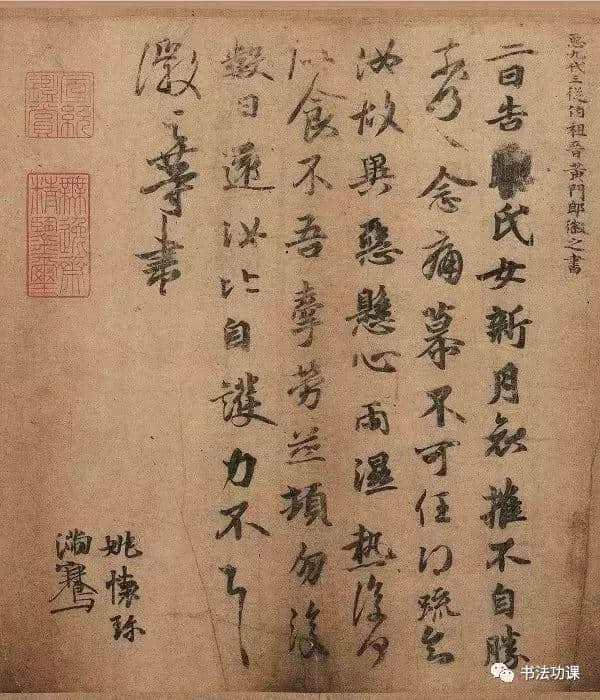 𢘑九代三從伯祖晉黃門郎徽之書
二日告氏女新月哀摧不自勝
奈何〻念痛慕不可任得疏知
汝故異惡懸心雨濕熱復何
似食不吾牽勞並頓勿復
數日還汝比自護力不具
徽之等書
姚懷珍
滿騫
宣統鑒賞
無逸齋精鑒璽
书法功课